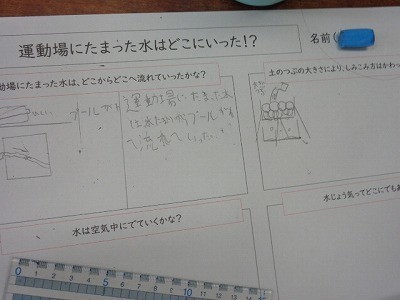 運動場にたまった水はどこにいった!?
名前(
動場にたまった水は、どこからどこへ流れていったかな?
土のつぶの大きさにより、しみこみ方はかわっ
プール
運動場にたまった水
は水たまりからプールがわ
へ流れていった。
水は空気中にでていくかな?
水じょう気ってどこにでもあ
0 1 2 3 4 5 6 7 8 9 10